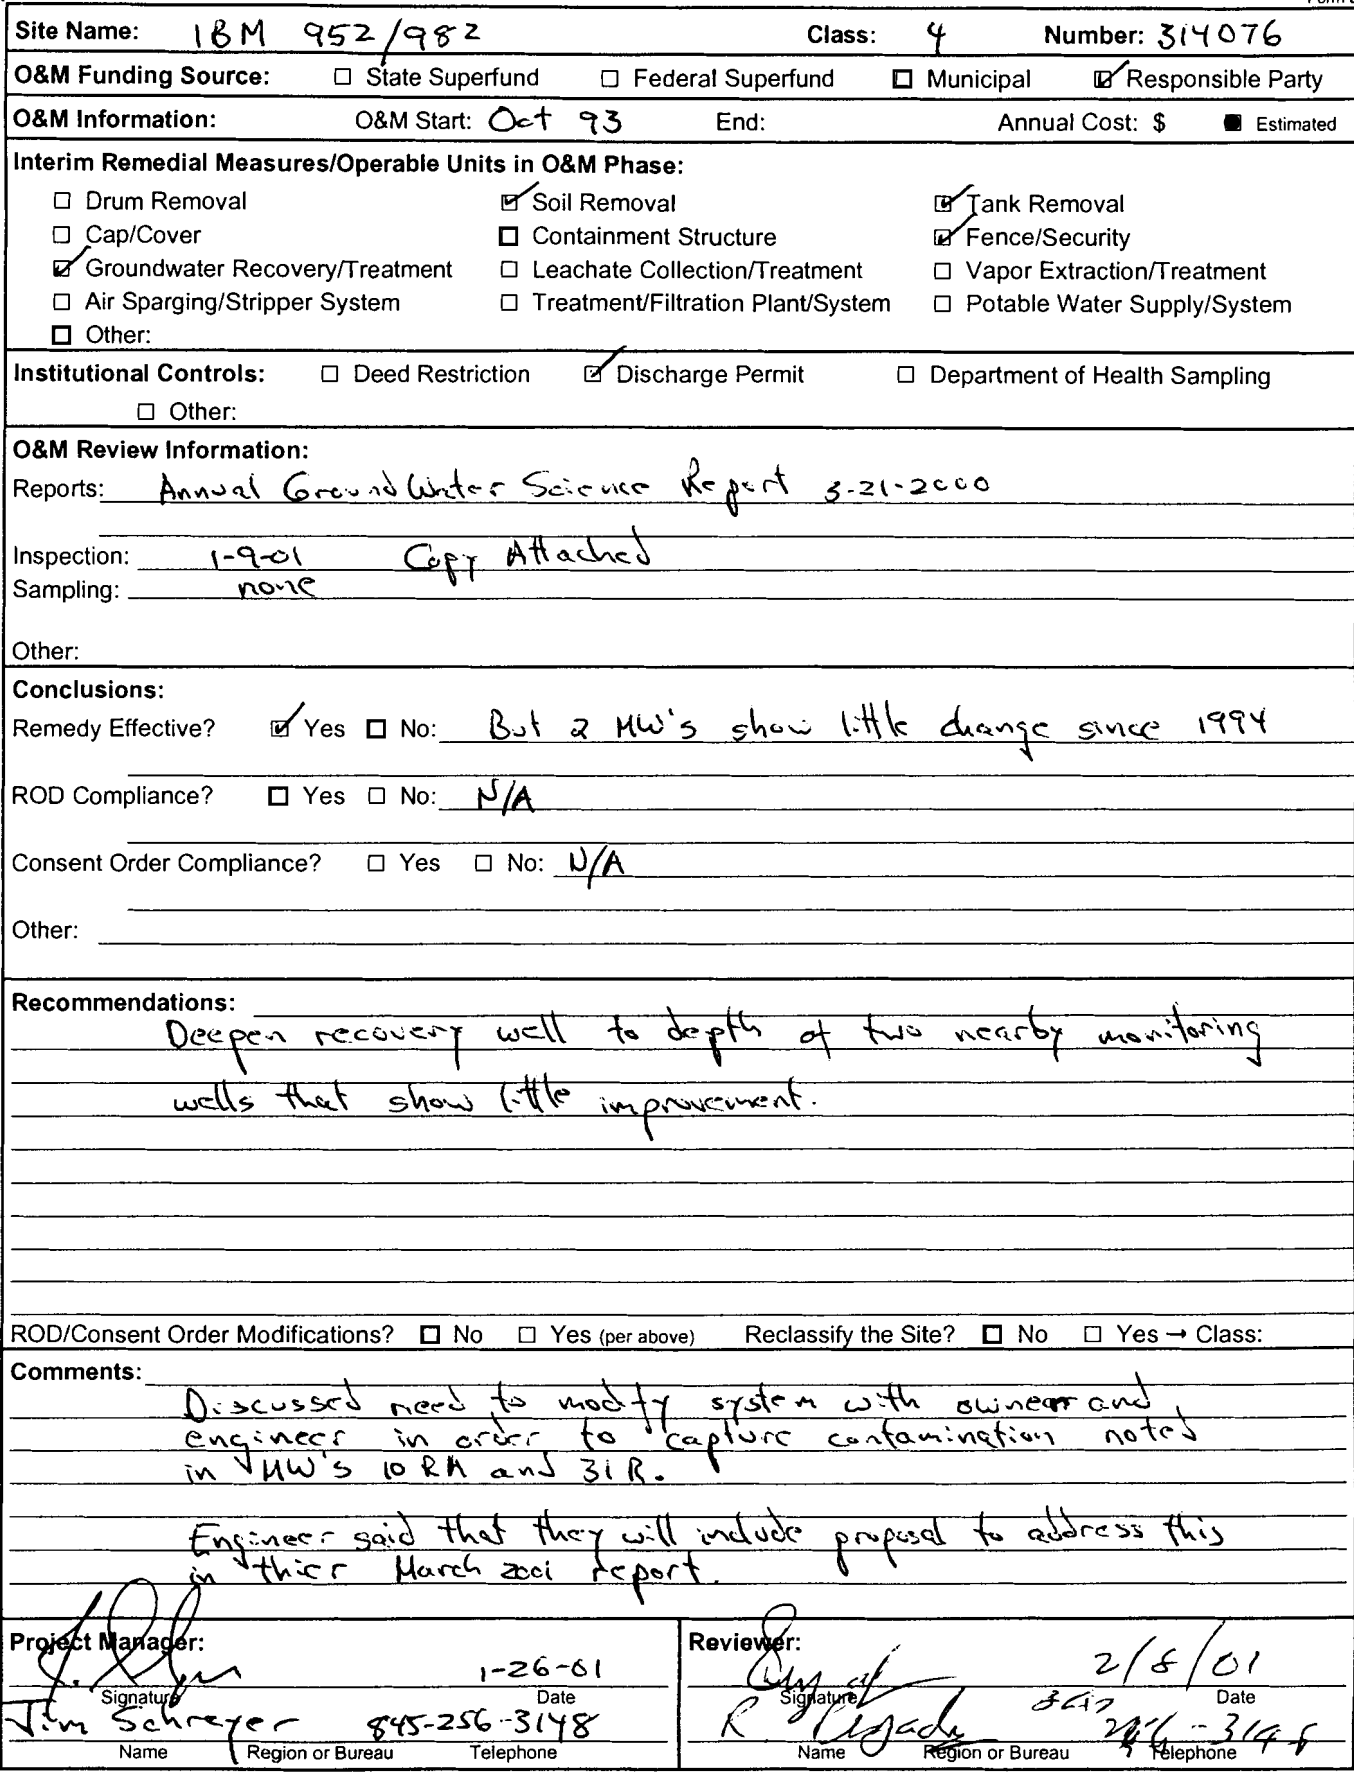 Site Name: IBM 952/982 Class: 4 Number: 314076
O&M Funding Source: ☐ State Superfund ☐ Federal Superfund ☐ Municipal ☑ Responsible Party
O&M Information: O&M Start: Oct 93 End: Annual Cost: $ ■ Estimated
Interim Remedial Measures/Operable Units in O&M Phase:
☐ Drum Removal ☑ Soil Removal ☑ Tank Removal
☐ Cap/Cover ☐ Containment Structure ☑ Fence/Security
☑ Groundwater Recovery/Treatment ☐ Leachate Collection/Treatment ☐ Vapor Extraction/Treatment
☐ Air Sparging/Stripper System ☐ Treatment/Filtration Plant/System ☐ Potable Water Supply/System
☐ Other:
Institutional Controls: ☐ Deed Restriction ☑ Discharge Permit ☐ Department of Health Sampling
☐ Other:
O&M Review Information:
Reports: Annual GroundWater Science Report 3-21-2000
Inspection: 1-9-01 Copy Attached
Sampling: none
Other:
Conclusions:
Remedy Effective? ☑ Yes ☐ No: But 2 MW's show little change since 1994
ROD Compliance? ☐ Yes ☐ No: N/A
Consent Order Compliance? ☐ Yes ☐ No: N/A
Other:
Recommendations:
Deepen recovery well to depth of two nearby monitoring
wells that show little improvement.
ROD/Consent Order Modifications? ☐ No ☐ Yes (per above) Reclassify the Site? ☐ No ☐ Yes → Class:
Comments:
Discussed need to modify system with owner and
engineer in order to capture contamination noted
in MW's 10 RM and 31R.
Engineer said that they will include proposal to address this
in thier March 2001 report.
Project Manager: Reviewer:
1-26-01 2/8/01
Signature Date Signature Date
Jim Schreyer 845-256-3148 R
Name Region or Bureau Telephone Name Region or Bureau Telephone